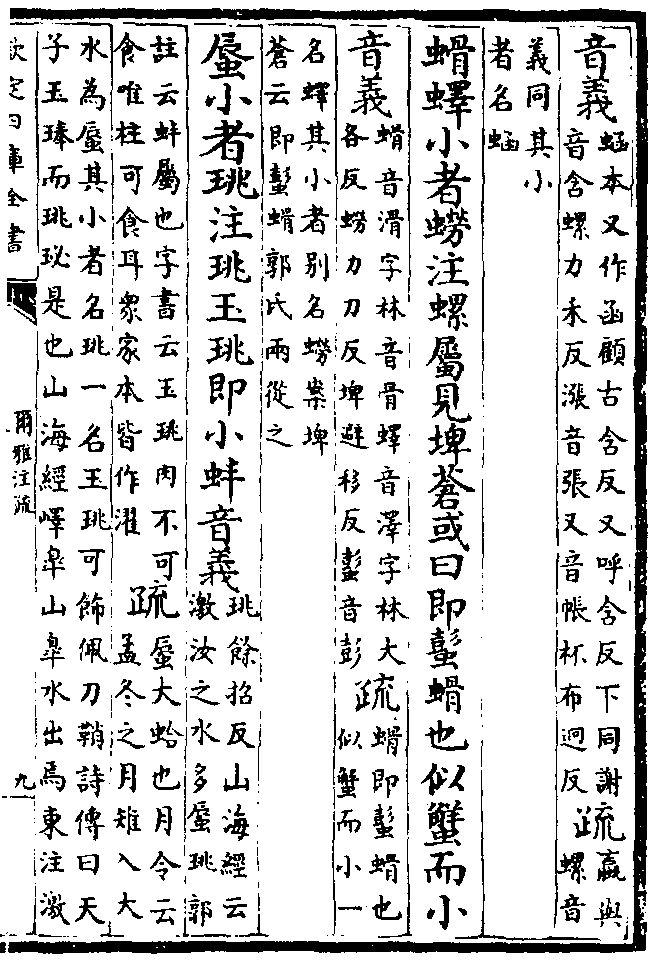 音義蜬本又作函顧古含反又呼含反下同謝
音含螺力禾反漲音張又音帳杯布迥反疏蠃與
螺音
義同其小
者名蜬
螖蠌小者蟧注螺屬見埤蒼或曰即蟛螖也似蟹而小
音義螖音滑字林音骨蠌音澤字林大
各反蟧力刀反埤避移反蟛音彭疏螖即蟛螖也
似蟹而小一
名蠌其小者别名蟧案埤
蒼云即蟛螖郭氏兩從之
蜃小者珧注珧玉珧即小蚌音義珧餘招反山海經云
激汝之水多蜃珧郭
註云蚌屬也字書云玉珧肉不可
食唯柱可食耳衆家本皆作濯疏蜃大蛤也月令云
孟冬之月雉入大
水為蜃其小者名珧一名玉珧可飾佩刀鞘詩傳曰天
子玉琫而珧珌是也山海經嶧臯山臯水出焉東注激
欽定四庫全書
爾雅注疏
九